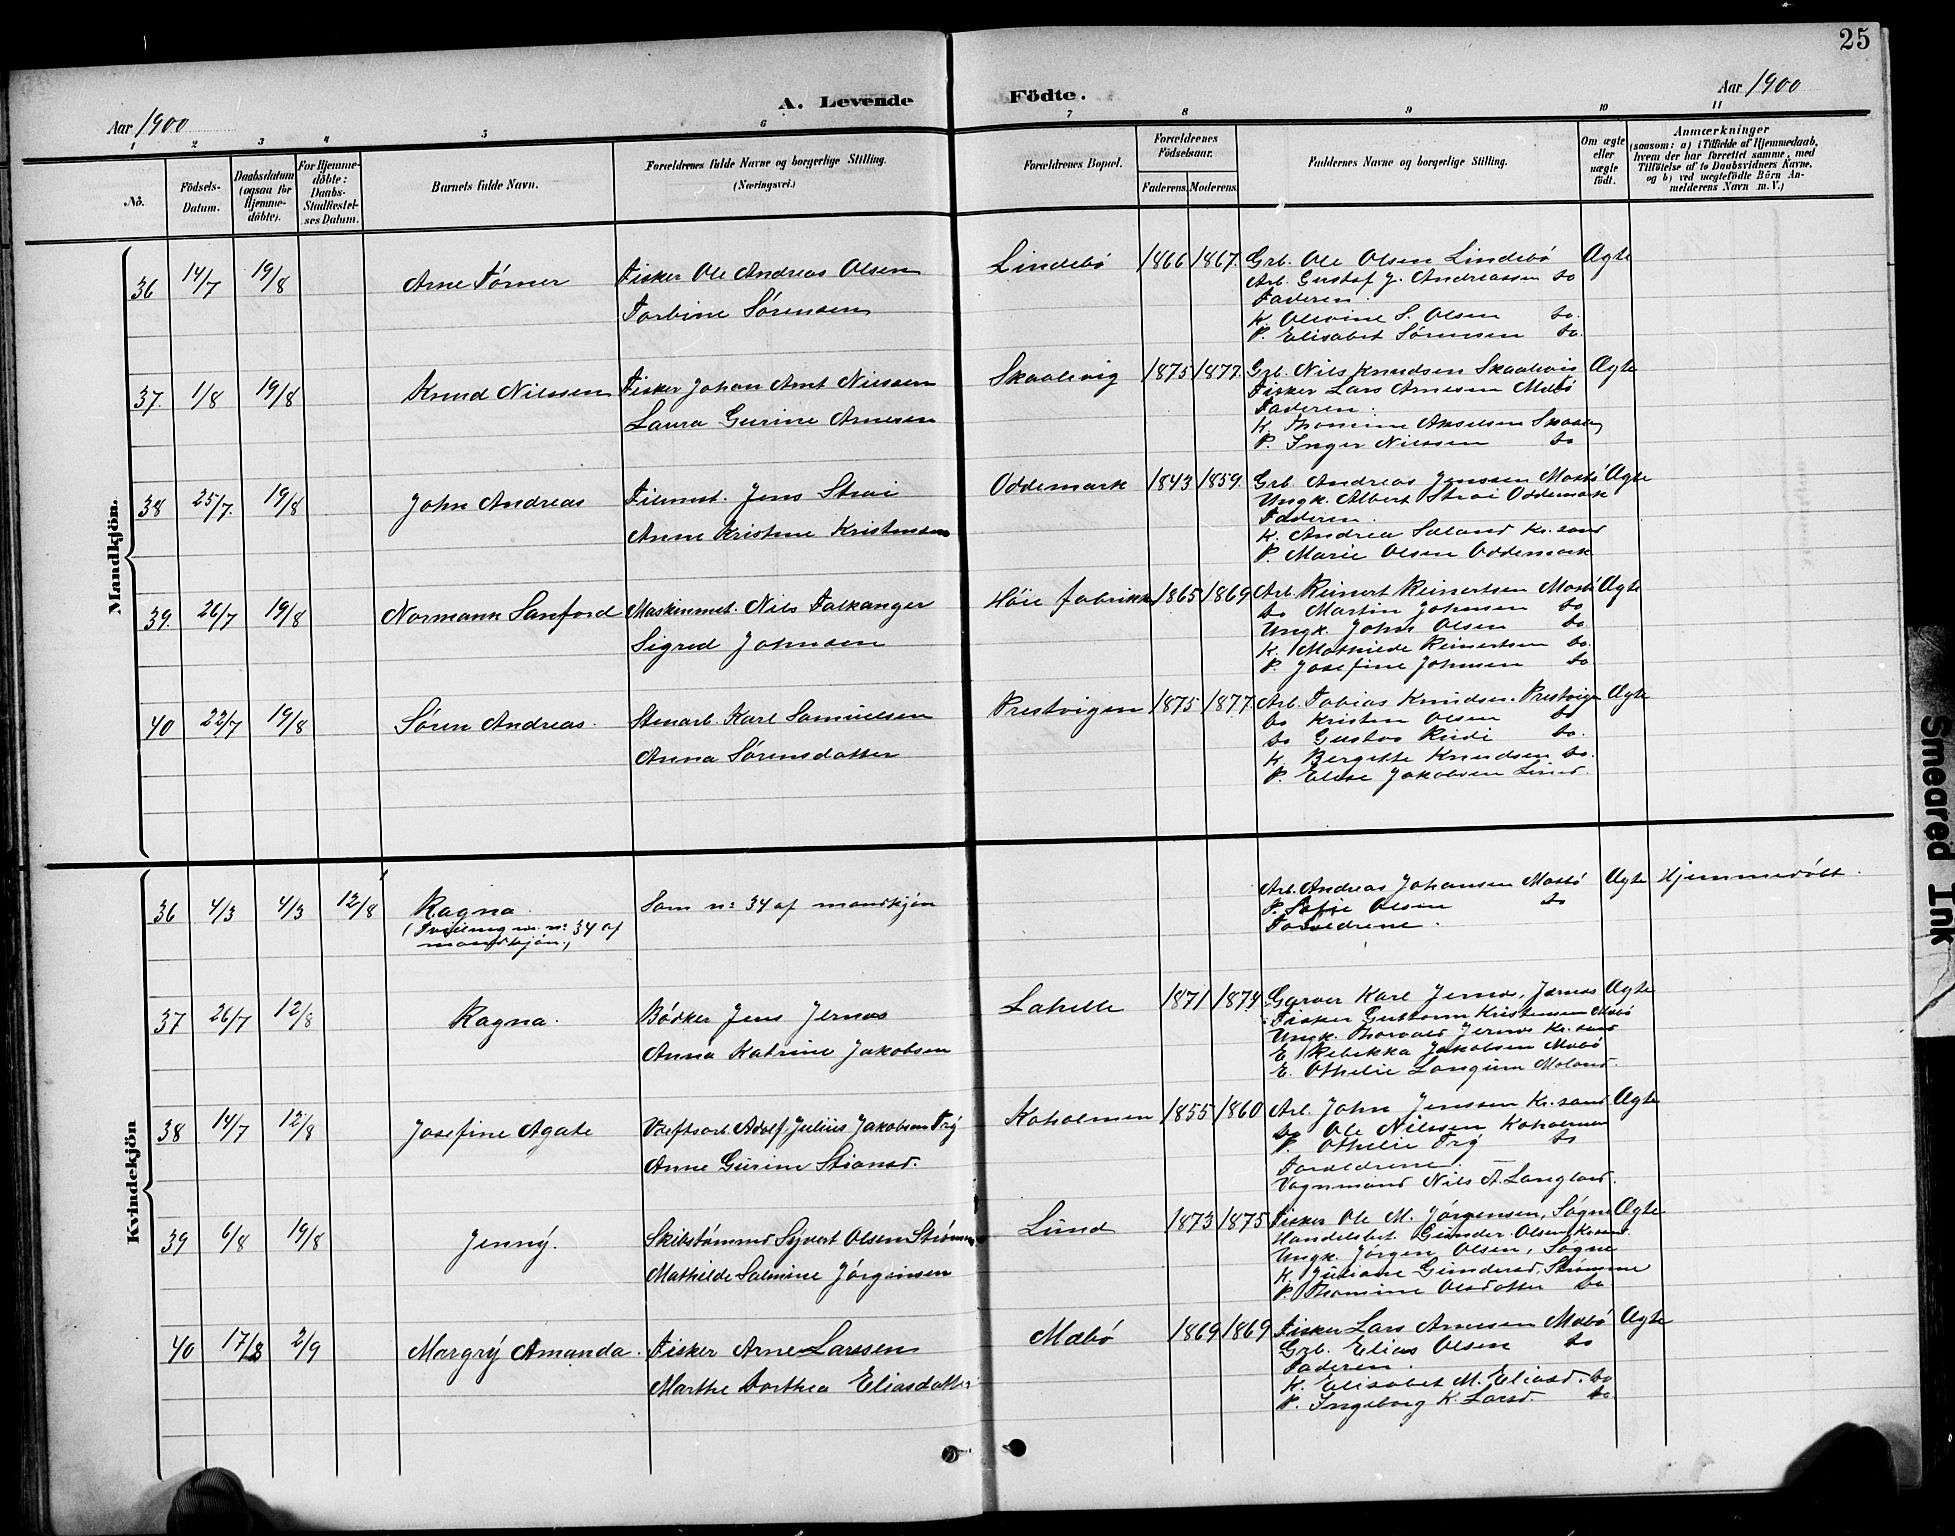 25
Aar 1900
A. Levende
Födte.
Aar 1900
1 2 3 4 5 6 7 8 9 10 11
No.
Födsels-Datum.
Daabsdatum (ogsaa for Hjemme-döbte).
For Hjemme-döbte: Daabs-Stadfæstel-ses Datum.
Barnets fulde Navn.
Forældrenes fulde Navne og borgerlige Stilling. (Næringsvei.)
Forældrenes Bopæl.
Forældrenes Födselsaar.
Faderens.
Moderens.
Faddernes Navne og borgerlige Stilling.
Om ægte eller uægte födt.
Anmærkninger
(saasom: a) i Tilfælde af Hjemmedaab, hvem der har forrettet samme, med Tilföielse af to Daabsvidners Navne, og b) ved uægtefödte Börn An-melderens Navn m. V.)
Mandkjön.
36 14/7 19/8 Arne Tørner Fisker Ole Andreas Olsen Lindebö 1866 1867. Grb. Ole Olsen Lindebö Ægte
Arb. Gustaf J. Andreassen do
Faderen.
Torbine Sørensen
K. Olevine S. Olsen do.
P. Elisabet Sørensen do.
37. 1/8 19/8 Knud Nilssen Fisker Johan Arnt Nilssen Skaalevig 1875 1877. Grb. Nils Knudsen Skaalevig Ægte
Fisker Lars Arnesen Mæbö
Faderen.
Laura Gurine Arnesen
K. Thomine Akselsen Skaalev
P. Inger Nilssen do
38 25/7. 19/8 John Andreas Filemst. Jens Strai Oddemark 1843 1859. Grb. Andreas Jenssen Mosbö Ægte
Ungk. Albert Strai Oddemark
Faderen.
Anne Kristine Kristensen
K. Andrea Søland Kr.sand
P. Marie Olsen Oddemark
39. 26/7 19/8 Normann Sanford Maskinmst. Nils Falkanger Höie fabrikk 1865 1869 Arb. Reinert Reinertsen Mosbö Ægte
do Martin Johnsen do
Ungk. John Olsen do.
Sigrid Johnsen
K. Mathilde Reinertsen do.
P. Josefine Johnsen do
40 22/7 19/8 Søren Andreas. Stenarb. Karl Samuelsen Prestvigen 1875 1877. Arb. Tobias Knudsen. Prestvigen Ægte
do Kristen Olsen do
do Gustav Rudi do.
Anna Sørensdatter
K. Bergitte Knudsen do.
P. Elise Jakobsen Lund.
Kvindekjön
36 4/3 4/3 12/8 Ragna. Som n: 34 af mandkjön Arb. Andreas Johansen Mosbö Ægte Hjemmedöbt.
(Tvilling m. n: 34 af mandkjön.)
P. Sofie Olsen do
Forældrene.
37 26/7 12/8 Ragna. Bödker Jens Jernes Lahelle 1871 1874 Garver Karl Jernes, Jærnes Ægte
Fisker Guttorm Kristensen Mæbö
Ungk. Thorvald Jernes Kr.sand
Anna Katrine Jakobsen
E. Rebekka Jakobsen Mæbö
E. Othelie Langum Moland.
38 14/7 12/8 Josefine Agate Værftsarb. Adolf Julius Jakobsen Try Koholmen 1855 1860 Arb. John Jenssen Kr.sand Ægte
do Ole Nilssen Koholmen
P. Othelie Try do
Anne Gurine Stiansd.
Forældrene.
Vognmand Nils A. Langland.
39 6/8 19/8 Jenny. Skibstømmd. Syvert Olsen Strømme Lund 1873 1875 Fisker Ole M. Jørgensen, Søgne Ægte
Handelsbet. Gunder Olsen Kr.sand.
Ungk. Jørgen Olsen, Søgne
Mathilde Salmine Jørgensen
K. Juliane Gundersd. Strømme
P. Thomine Olsdatter do
40 17/8 2/9 Margry Amanda. Fisker Arne Larssen Mæbö 1869 1869 Fisker Lars Arnesen Mæbö Ægte
Grb. Elias Olsen do
Faderen.
Marthe Dorthea Eliasdatter
K. Elisabet M. Eliasd. do
P. Ingeborg K. Larsd. do.
Smeared Ink